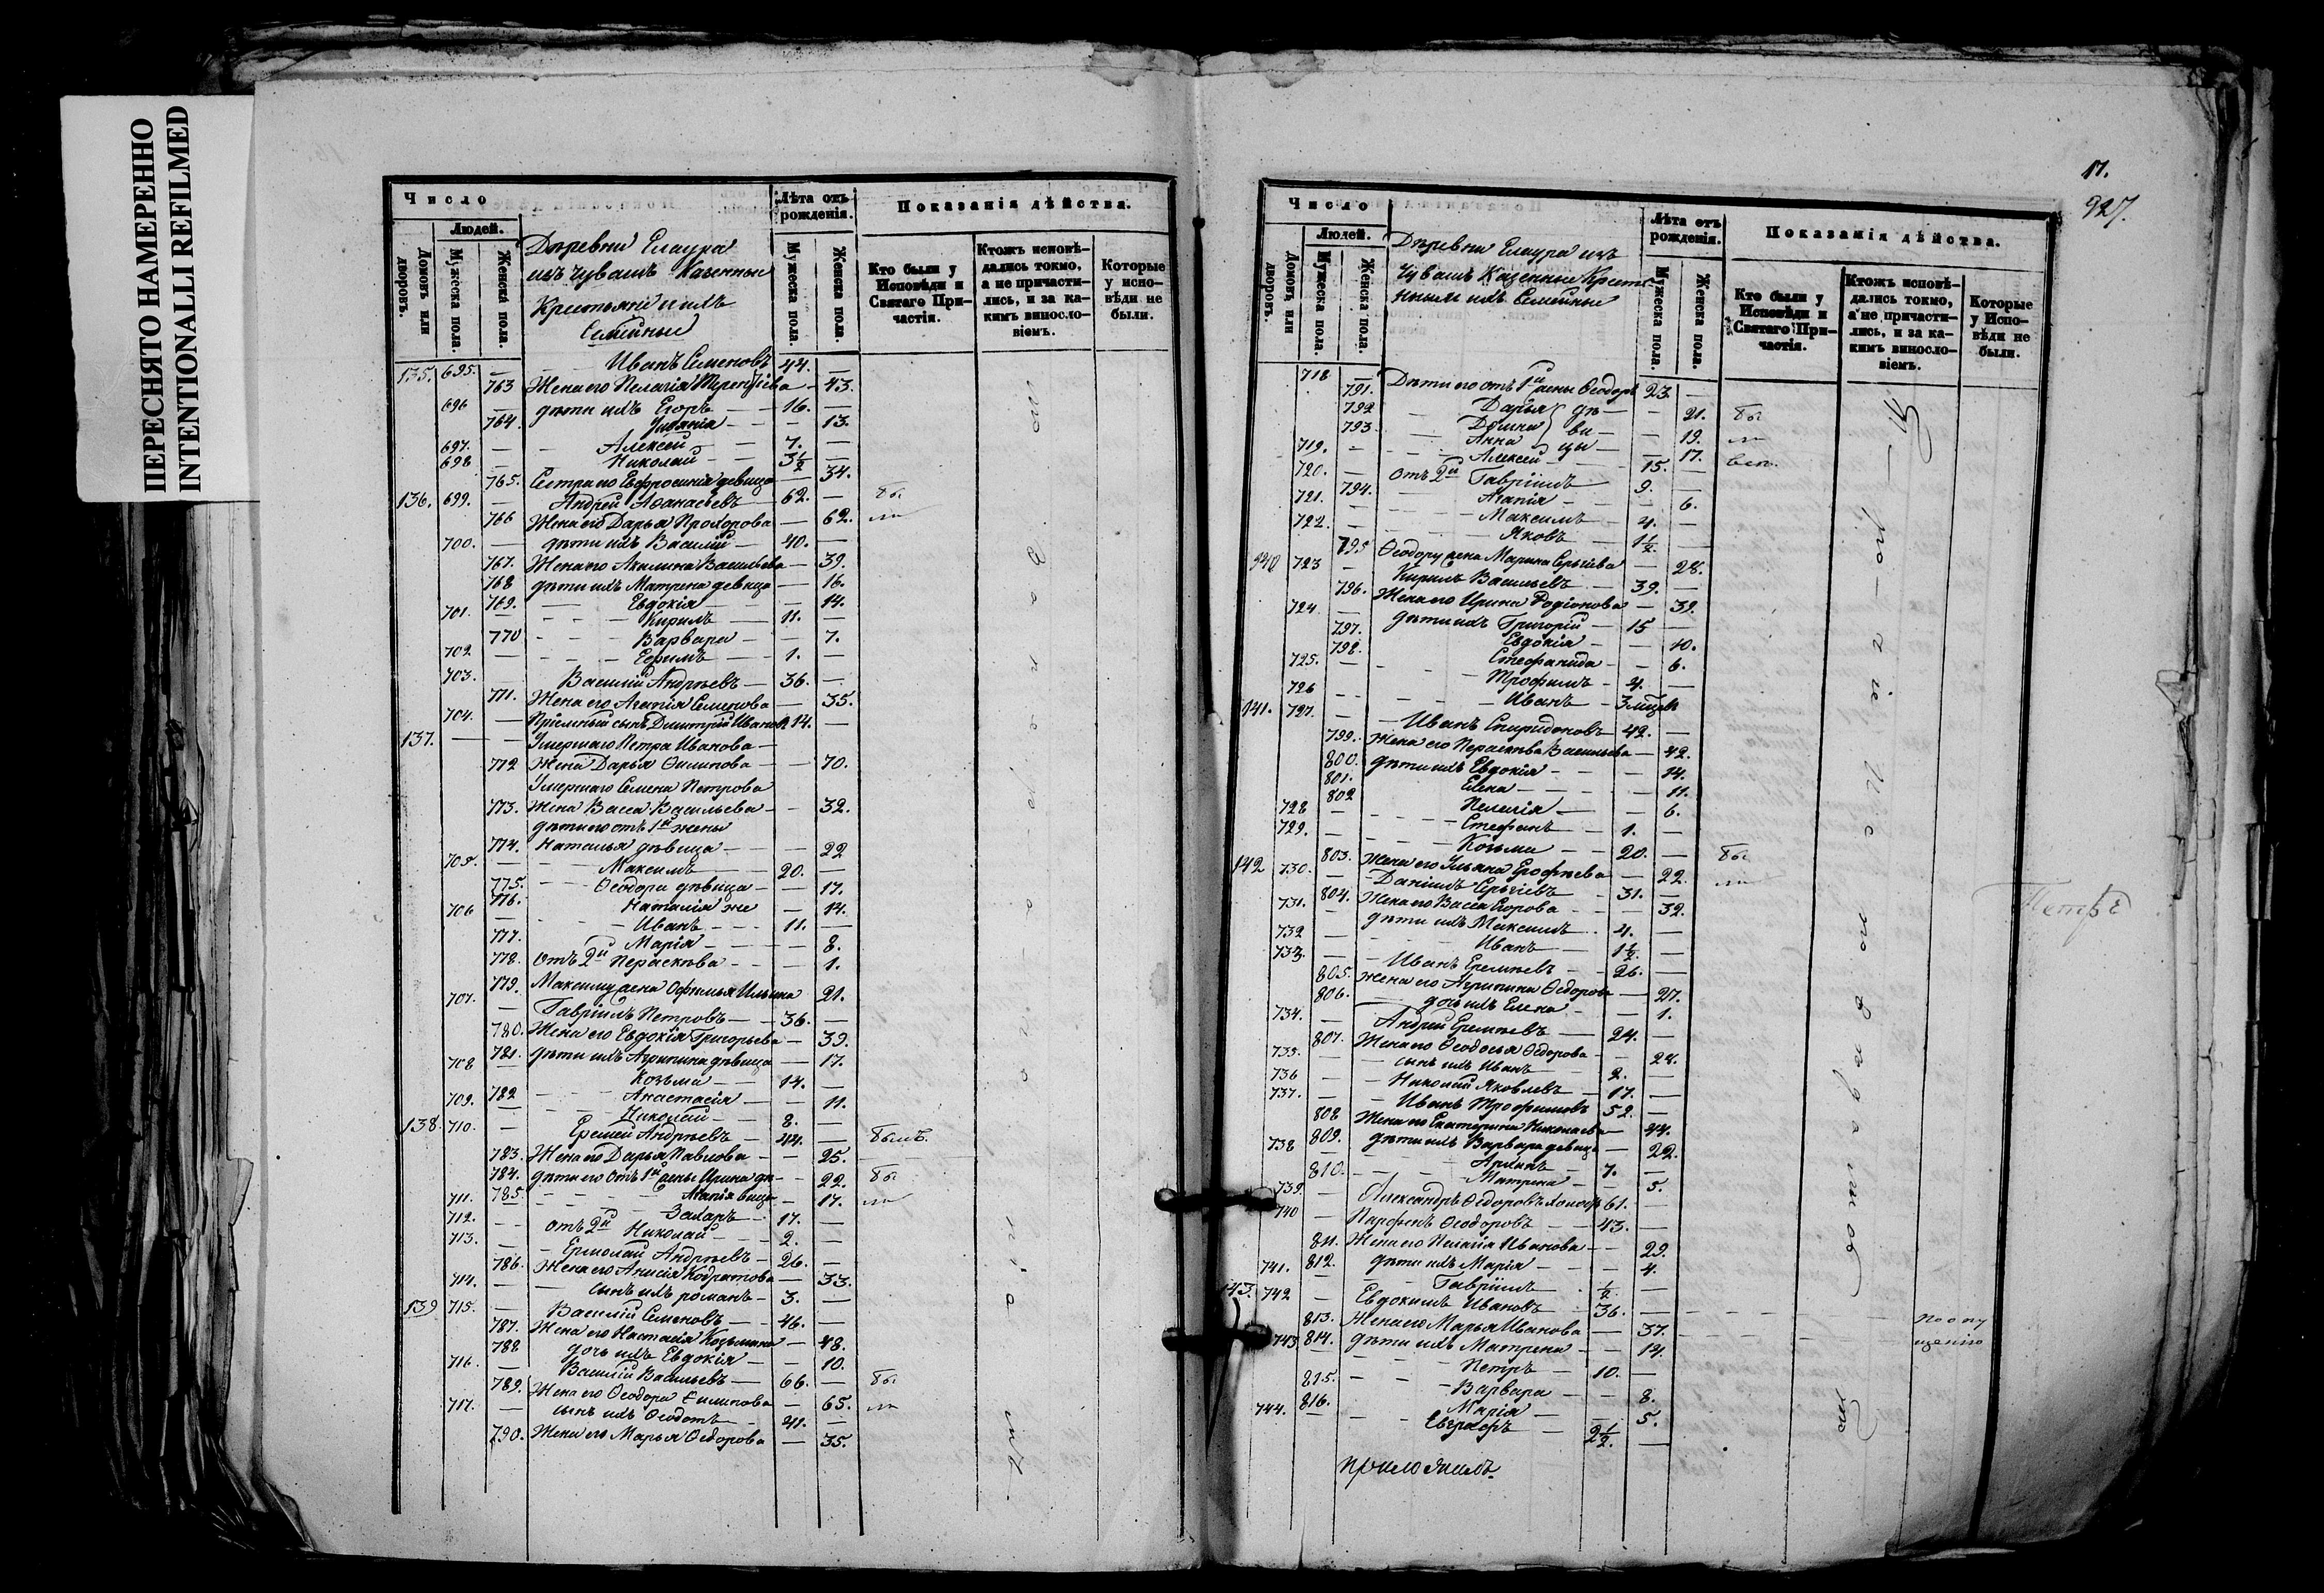 ПЕРЕСНЯТО НАМЕРЕННО
INTENTIONALLI REFILMED
Число
Людей.
Домовъ или дворовъ.
Мужеска пола.
Женска пола.
Деревни Елаура
изъ чувашъ Казенные
Крестьяне и ихъ
Семейные
Лѣта отъ рожденія.
Мужеска пола.
Женска пола.
Показанія дѣйства.
Кто были у Исповѣди и Святаго Причастія.
Ктожъ исповѣдались токмо, а не причастились, и за какимъ винословіемъ.
Которые у исповѣди не были.
135. 695. — Иванъ Семеновъ 44. —
763 Жена его Пелагія Терентіева — 43.
696 — дѣти ихъ Егоръ — 16. —
764. — 13.
697. — Алексей — 7. —
698 — Николай — 3½ —
765. Сестра его Евфросинія девица — 34.
136. 699. — Андрей Аѳанасьевъ — 62. — бы
766 Жена его Дарья Прохорова — 62. ли
700. — дѣти ихъ Василій — 40. —
767. Жена его Акилина Васильева — 39.
768 дѣти ихъ Матрена девица — 16.
769. — Евдокія — 14.
701. — Кирилъ — 11. —
770 — Варвара — 7.
702 — Ефимъ — 1. —
703. Василій Андреевъ — 36. —
771. Жена его Агапія Семенова — 35.
704. — Пріемный сынъ Дмитрій Ивановъ 14. —
137. — — Умершаго Петра Иванова —
772 Жена Дарья Филипова — 70.
Умершаго Семена Петрова
773. Жена Васса Васильева — 32.
дѣти его отъ 1й жены
774. Наталья дѣвица — 22
705. — Максимъ — 20. —
775. — Ѳеодора дѣвица — 17.
776. Наталія же — 14.
706 — Иванъ — 11. —
777. Марія — 8.
778. Отъ 2й Параскева — 1.
779. Максиму жена Офимья Ильина 21.
707. — Гавріилъ Петровъ — 36. —
780. Жена его Евдокія Григорьева — 39.
781. дѣти ихъ Агрипина дѣвица — 17.
708 — Козьма — 14. —
782 — Анастасія — 11.
709. — Николай — 8. —
138. 710. — Еремей Андреевъ — 44. — былъ.
783. Жена его Дарья Павлова — 25.
784. дѣти его отъ 1й жены Ирина дѣ — 22. бы
785. — Агапія вица — 17. ли
711. — Захаръ — 17. —
712. — отъ 2й Николай — 2. —
713. — Ермолай Андреевъ — 26. —
786. Жена его Анисія Кодратова — 33.
714. — сынъ ихъ романъ — 3. —
139 715. — Василій Семеновъ — 46. —
787. Жена его Настасія Козьмина — 48.
788 дочь ихъ Евдокія — 10.
716. — Василій Васильевъ — 66. — бы
789. Жена его Ѳеодора Филипова — 65. ли
717. — сынъ ихъ Ѳеодотъ — 41. —
790. Жена его Марья Ѳедорова — 35.
17.
927.
Число
Людей.
Домовъ, или дворовъ.
Мужеска пола.
Женска пола.
Деревни Елаура изъ
Чувашъ Казенные Крестья
ные и ихъ Семейные
Лѣта отъ рожденія.
Мужеска пола.
Женска пола.
Показанія дѣйства.
Кто были у Исповѣди и Святаго Причастія.
Ктож исповѣдались токмо, а не причастились, и за какимъ винословіемъ.
Которые у Исповѣди не были.
718 — Дѣти его отъ 1й жены Ѳеодоръ 23. —
791. Дарья дѣ — 21. бы
792 Домна ви — 19. ли
793. Анна цы — 17. всѣ.
719. — Алексей — 15. —
720. — отъ 2й Гавріилъ 9. —
794. Агапія — 6.
721. — Максимъ — 4. —
722. — Яковъ — 1½ —
795 Ѳеодору жена Марина Сергіева — 28.
140 723 — Кирилъ Васильевъ — 39. —
796. Жена его Ирина Родіонова — 39.
724. — дѣти ихъ Григорій — 15 —
797. Евдокія — 10.
798. Стефанида — 6.
725. — Трофимъ — 4. —
726 — Иванъ — 3 мѣсяц
141. 727. — Иванъ Спиридоновъ 42. —
799. Жена его Параскева Васильева — 42.
800. дѣти ихъ Евдокія — 14.
801. Елена — 11.
802 Пелагія — 6.
728 — Стефанъ — 1. —
729. — Козьма — 20. — бы
803. Жена его Ульяна Ерофеева — 22. ли
142 730. — Даніилъ Сергіевъ — 31. —
804. Жена его Васса Егорова — 32.
731. — дѣти ихъ Максимъ — 4. —
732 — Иванъ — 1½ —
733. — Иванъ Еремѣевъ — 26. —
805. Жена его Агрипина Ѳедорова — 27.
806. дочь ихъ Елена — 1.
734. — Андрей Еремѣевъ — 24. —
807. Жена его Ѳеодосья Ѳедорова — 24.
735. — сынъ ихъ Иванъ — 2. —
736 — Николай Яковлевъ — 17. —
737. — Иванъ Трофимовъ 52. —
808 Жена его Екатерина Николаева — 44.
809. дѣти ихъ Варвара девица — 22.
738 — Архипъ — 7. —
810. — Матрена — 5.
739. — Александръ Ѳедоровъ 61. —
740 — Парфенъ Ѳеодоровъ — 43. —
811. Жена его Пелагія Иванова — 29.
812. дѣти ихъ Марія — 4.
741. — Гавріилъ — ½ —
143. 742 — Евдокимъ Ивановъ 36. —
813. Жена его Марья Иванова — 37.
814. дѣти ихъ Матрена — 14.
743. — Петръ — 10. —
815. — Варвара — 8.
816. Марія — 5.
744. — Евграфъ — 2½ —
по опу
щенію
Петръ
приложилъ.